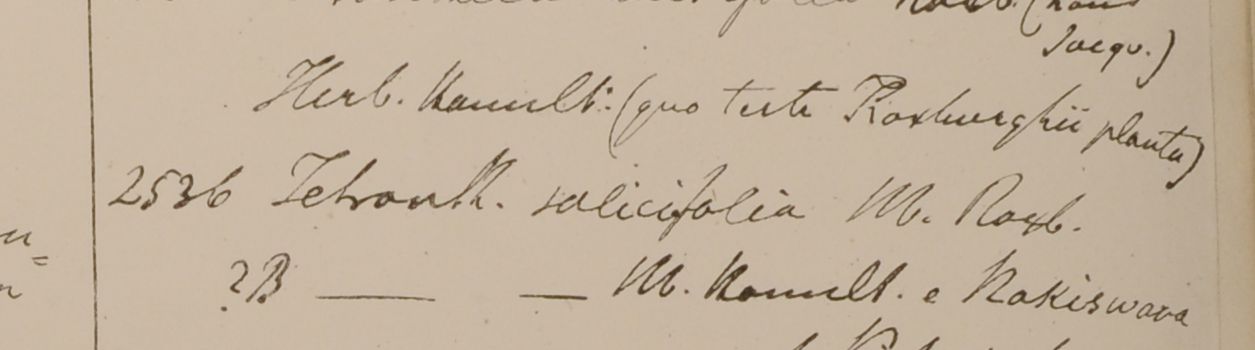 Roxb. (haud
Jacqu.)
Herb. Hamilt: (quo teste Roxburghii planta)
2536 Tetranth. salicifolia M. Roxb.
?B — — M. Hamilt. e Nakiswara